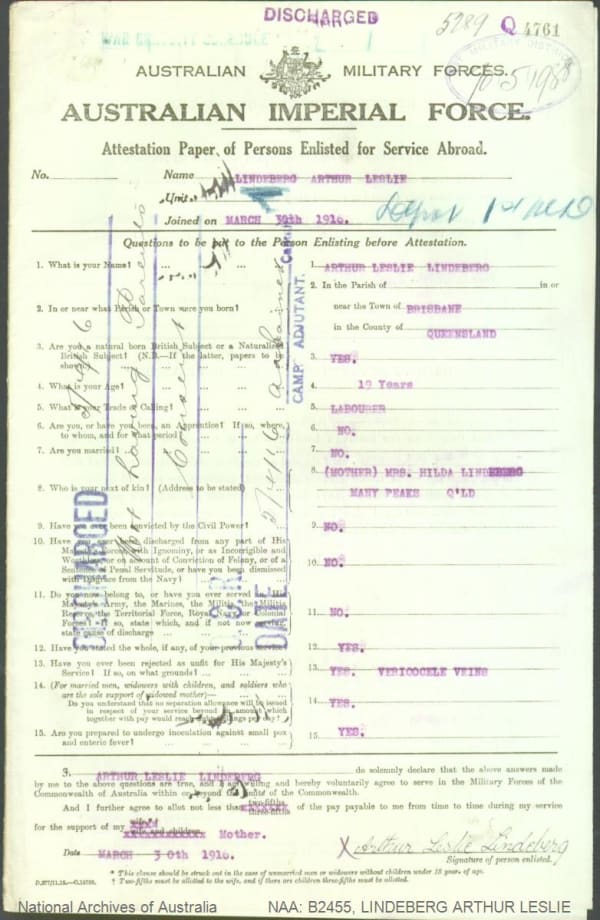 DISCHARGED
5789 Q 4761
AUSTRALIAN MILITARY FORCES.
AUSTRALIAN IMPERIAL FORCE.
Attestation Paper of Persons Enlisted for Service Abroad.
No. Name LINDEBERG ARTHUR LESLIE
Unit
Joined on MARCH 30th 1916.
Questions to be put to the Person Enlisting before Attestation.
1. What is your Name?
1. ARTHUR LESLIE LINDEBERG
2. In or near what Parish or Town were you born?
2. In the Parish of in or
near the Town of BRISBANE
in the County of QUEENSLAND
3. Are you a natural born British Subject or a Naturalised
British Subject? (N.B.—If the latter, papers to be
shown)
3. YES.
4. What is your Age?
4. 19 Years
5. What is your Trade or Calling?
5. LABOURER
6. Are you, or have you been, an Apprentice? If so, where,
to whom, and for what period?
6. NO.
7. Are you married?
7. NO.
8. Who is your next of kin? (Address to be stated)
8 (MOTHER) MRS. HILDA LINDEBERG
MANY PEAKS Q'LD
9. Have you ever been convicted by the Civil Power?
9. NO.
10. Have you ever been discharged from any part of His
Majesty's Forces, with Ignominy, or as Incorrigible and
Worthless, or on account of Conviction of Felony, or of a
Sentence of Penal Servitude, or have you been dismissed
with Disgrace from the Navy?
10. NO.
11. Do you now belong to, or have you ever served in, His
Majesty's Army, the Marines, the Militia, the Militia
Reserve, the Territorial Force, Royal Navy, or Colonial
Forces? If so, state which, and if not now serving,
state cause of discharge
11. NO.
12. Have you stated the whole, if any, of your previous service?
12. YES.
13. Have you ever been rejected as unfit for His Majesty's
Service? If so, on what grounds?
13. YES. VERICOCELE VEINS
14. (For married men, widowers with children, and soldiers who
are the sole support of widowed mother)—
Do you understand that no separation allowance will be issued
in respect of your service beyond an amount which
together with pay would reach eight shillings per day?
14. YES.
15. Are you prepared to undergo inoculation against small pox
and enteric fever?
15. YES.
CAMP ADJUTANT.
DISCHARGED
DATE
not having Parents
Consent
3. ARTHUR LESLIE LINDEBERG do solemnly declare that the above answers made
by me to the above questions are true, and I am willing and hereby voluntarily agree to serve in the Military Forces of the
Commonwealth of Australia within or beyond the limits of the Commonwealth.
And I further agree to allot not less than two-fifths three-fifths of the pay payable to me from time to time during my service
for the support of my wife wife and children Mother.
Date MARCH 30th 1916.
X Arthur Leslie Lindeberg
Signature of person enlisted.
* This clause should be struck out in the case of unmarried men or widowers without children under 18 years of age.
† Two-fifths must be allotted to the wife, and if there are children three-fifths must be allotted.
National Archives of Australia NAA: B2455, LINDEBERG ARTHUR LESLIE